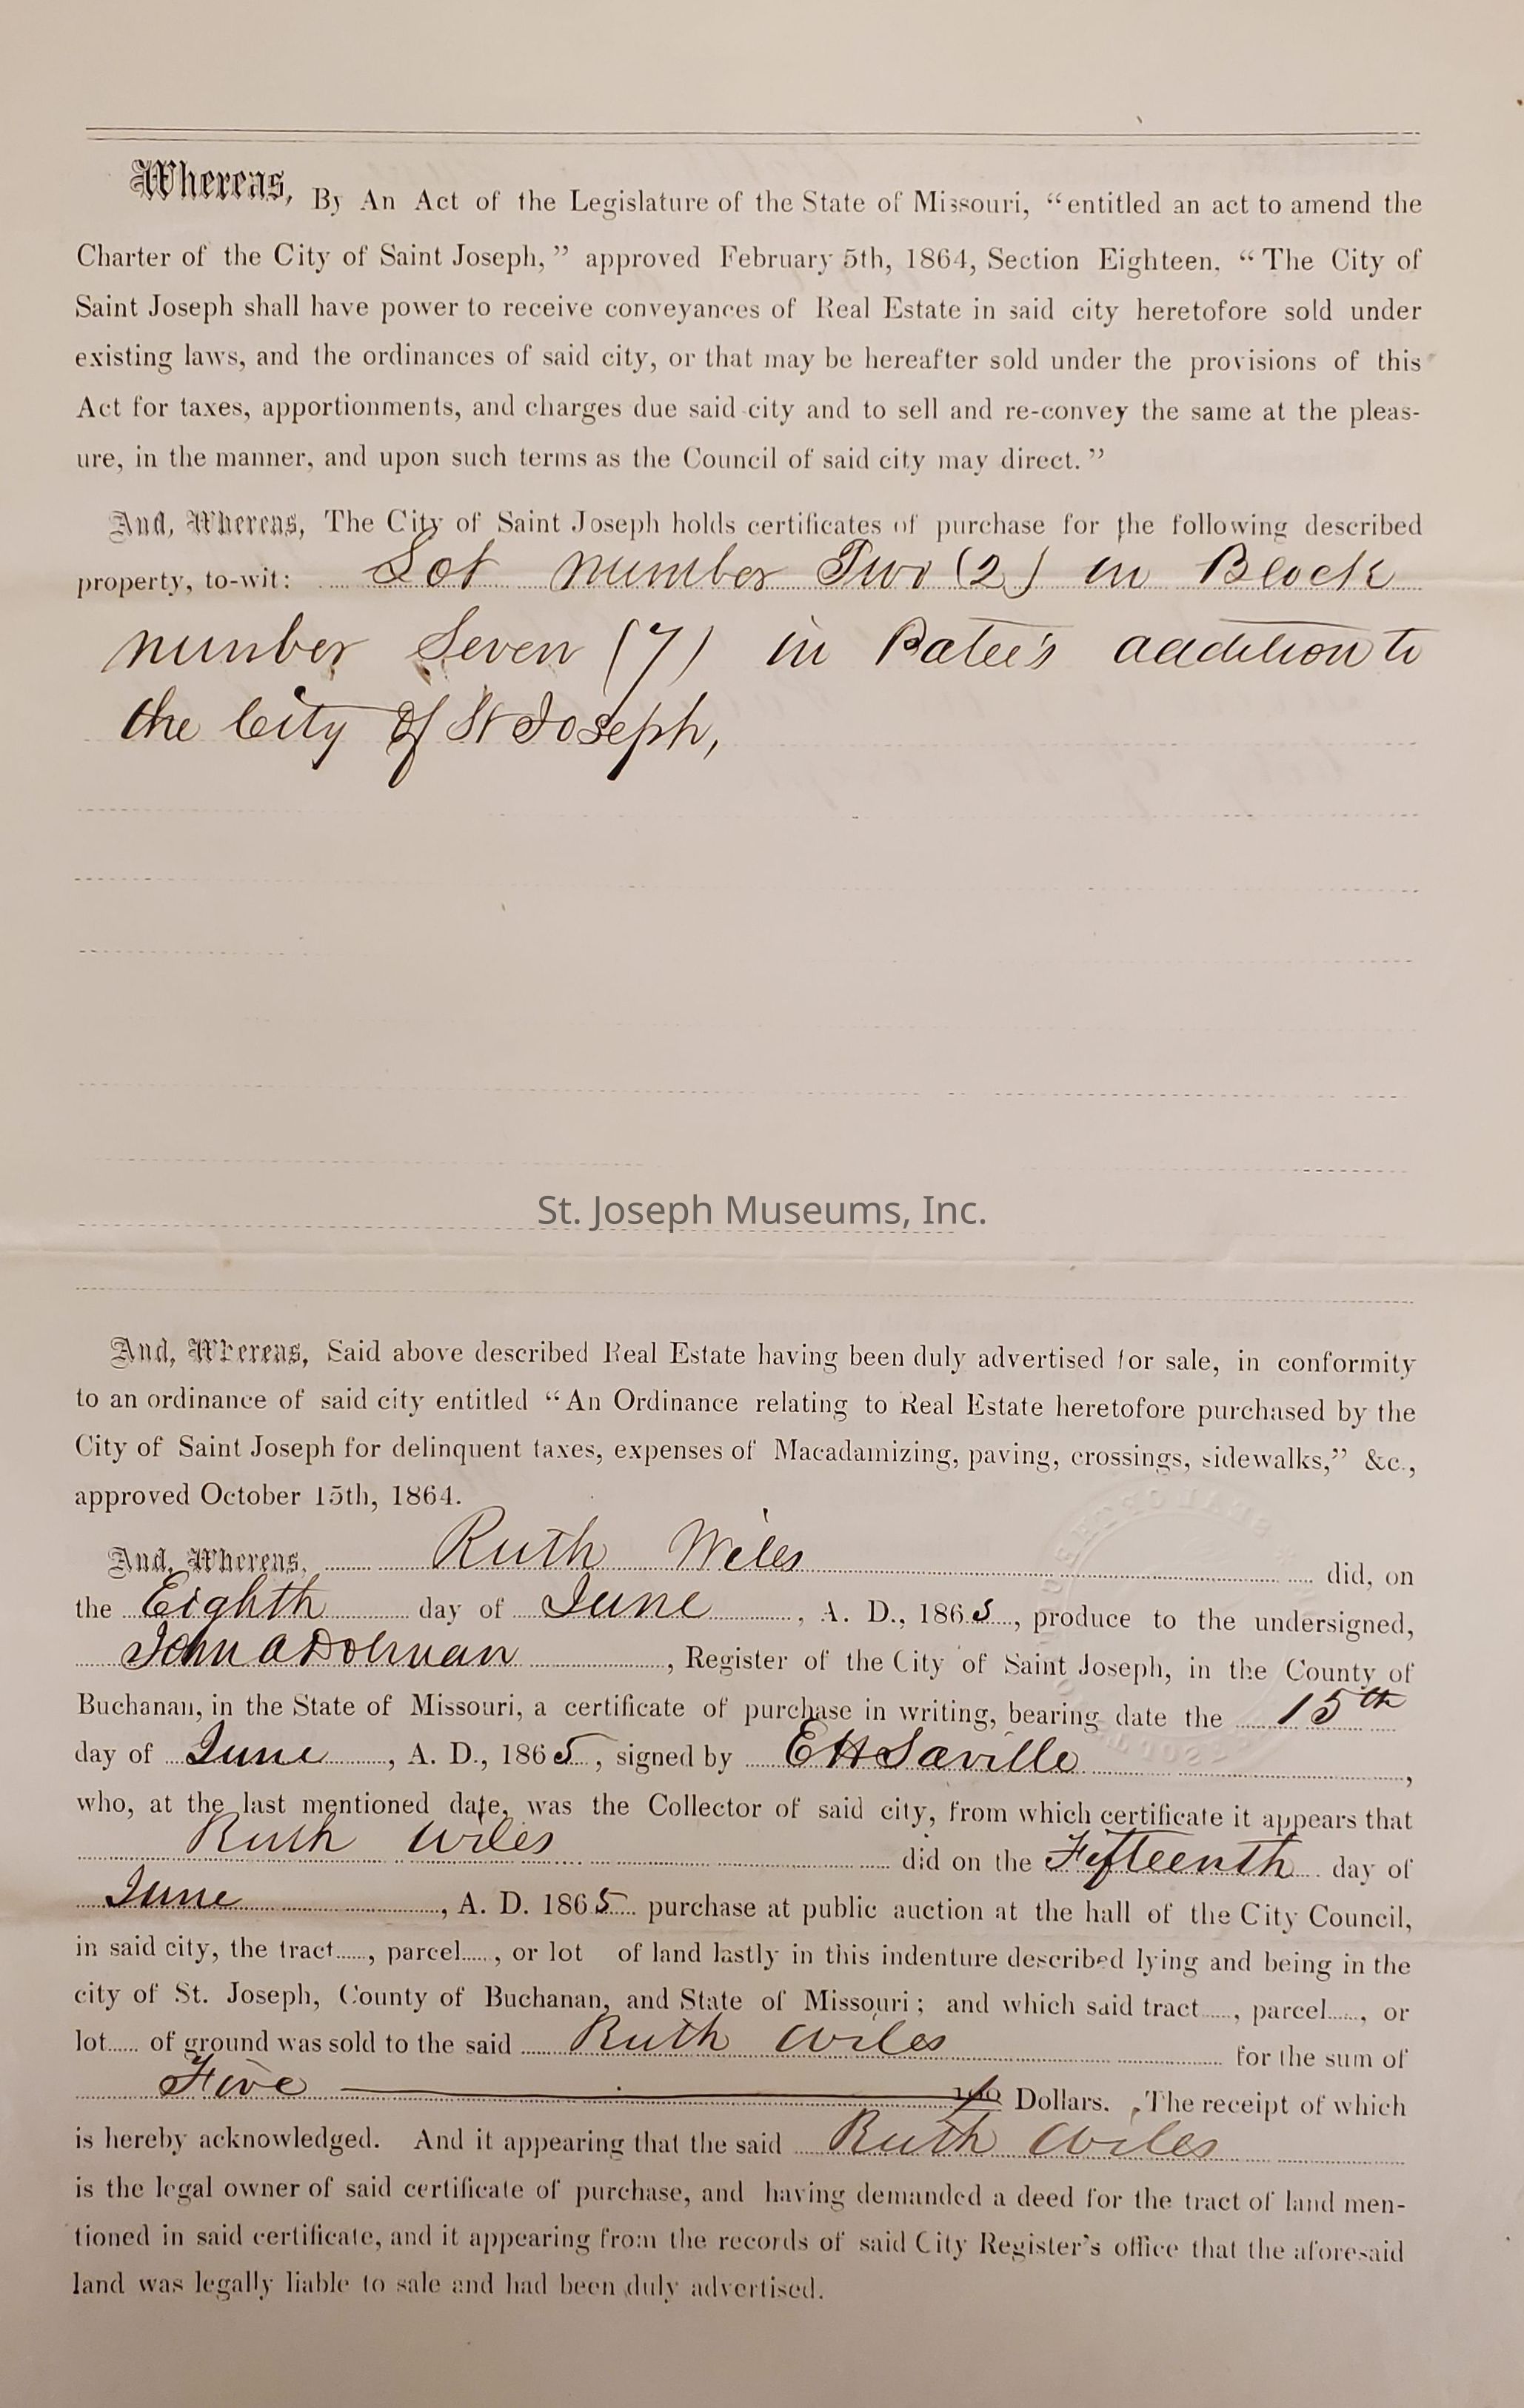 Whereas, By An Act of the Legislature of the State of Missouri, “entitled an act to amend the
Charter of the City of Saint Joseph,” approved February 5th, 1864, Section Eighteen, “The City of
Saint Joseph shall have power to receive conveyances of Real Estate in said city heretofore sold under
existing laws, and the ordinances of said city, or that may be hereafter sold under the provisions of this
Act for taxes, apportionments, and charges due said city and to sell and re-convey the same at the pleas-
ure, in the manner, and upon such terms as the Council of said city may direct.”
And, Whereas, The City of Saint Joseph holds certificates of purchase for the following described
property, to-wit: Lot number Two (2) in Block
number Seven (7) in Patee's addition to
the City of St Joseph,
St. Joseph Museums, Inc.
And, Whereas, Said above described Real Estate having been duly advertised for sale, in conformity
to an ordinance of said city entitled “An Ordinance relating to Real Estate heretofore purchased by the
City of Saint Joseph for delinquent taxes, expenses of Macadamizing, paving, crossings, sidewalks,” &c.,
approved October 15th, 1864.
And, Whereas, Ruth Wiles did, on
the Eighth day of June, A. D., 1865, produce to the undersigned,
John A Dolman, Register of the City of Saint Joseph, in the County of
Buchanan, in the State of Missouri, a certificate of purchase in writing, bearing date the 15th
day of June, A. D., 1865, signed by E H Saville,
who, at the last mentioned date, was the Collector of said city, from which certificate it appears that
Ruth Wiles did on the Fifteenth day of
June, A. D. 1865 purchase at public auction at the hall of the City Council,
in said city, the tract, parcel, or lot of land lastly in this indenture described lying and being in the
city of St. Joseph, County of Buchanan, and State of Missouri; and which said tract, parcel, or
lot of ground was sold to the said Ruth Wiles for the sum of
Five 100 Dollars. The receipt of which
is hereby acknowledged. And it appearing that the said Ruth Wiles
is the legal owner of said certificate of purchase, and having demanded a deed for the tract of land men-
tioned in said certificate, and it appearing from the records of said City Register's office that the aforesaid
land was legally liable to sale and had been duly advertised.